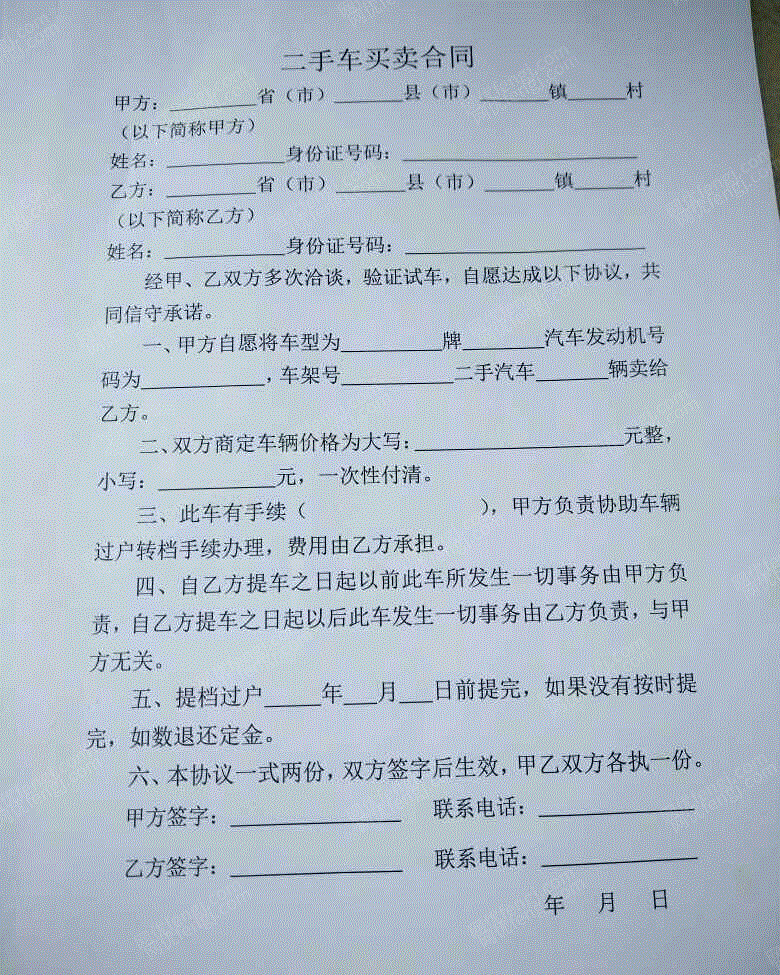 二手车买卖合同
甲方：________省（市）_______县（市）_______镇______村
（以下简称甲方）
姓名：____________身份证号码：________________________
乙方：_________省（市）_______县（市）_______镇______村
（以下简称乙方）
姓名：____________身份证号码：________________________
经甲、乙双方多次洽谈，验证试车，自愿达成以下协议，共
同信守承诺。
一、甲方自愿将车型为__________牌________汽车发动机号
码为____________，车架号___________二手汽车_______辆卖给
乙方。
二、双方商定车辆价格为大写：____________________元整，
小写：___________元，一次性付清。
三、此车有手续（                ），甲方负责协助车辆
过户转档手续办理，费用由乙方承担。
四、自乙方提车之日起以前此车所发生一切事务由甲方负
责，自乙方提车之日起以后此车发生一切事务由乙方负责，与甲
方无关。
五、提档过户_____年___月___日前提完，如果没有按时提
完，如数退还定金。
六、本协议一式两份，双方签字后生效，甲乙双方各执一份。
甲方签字：________________ 联系电话：______________
乙方签字：________________ 联系电话：______________
年 月 日